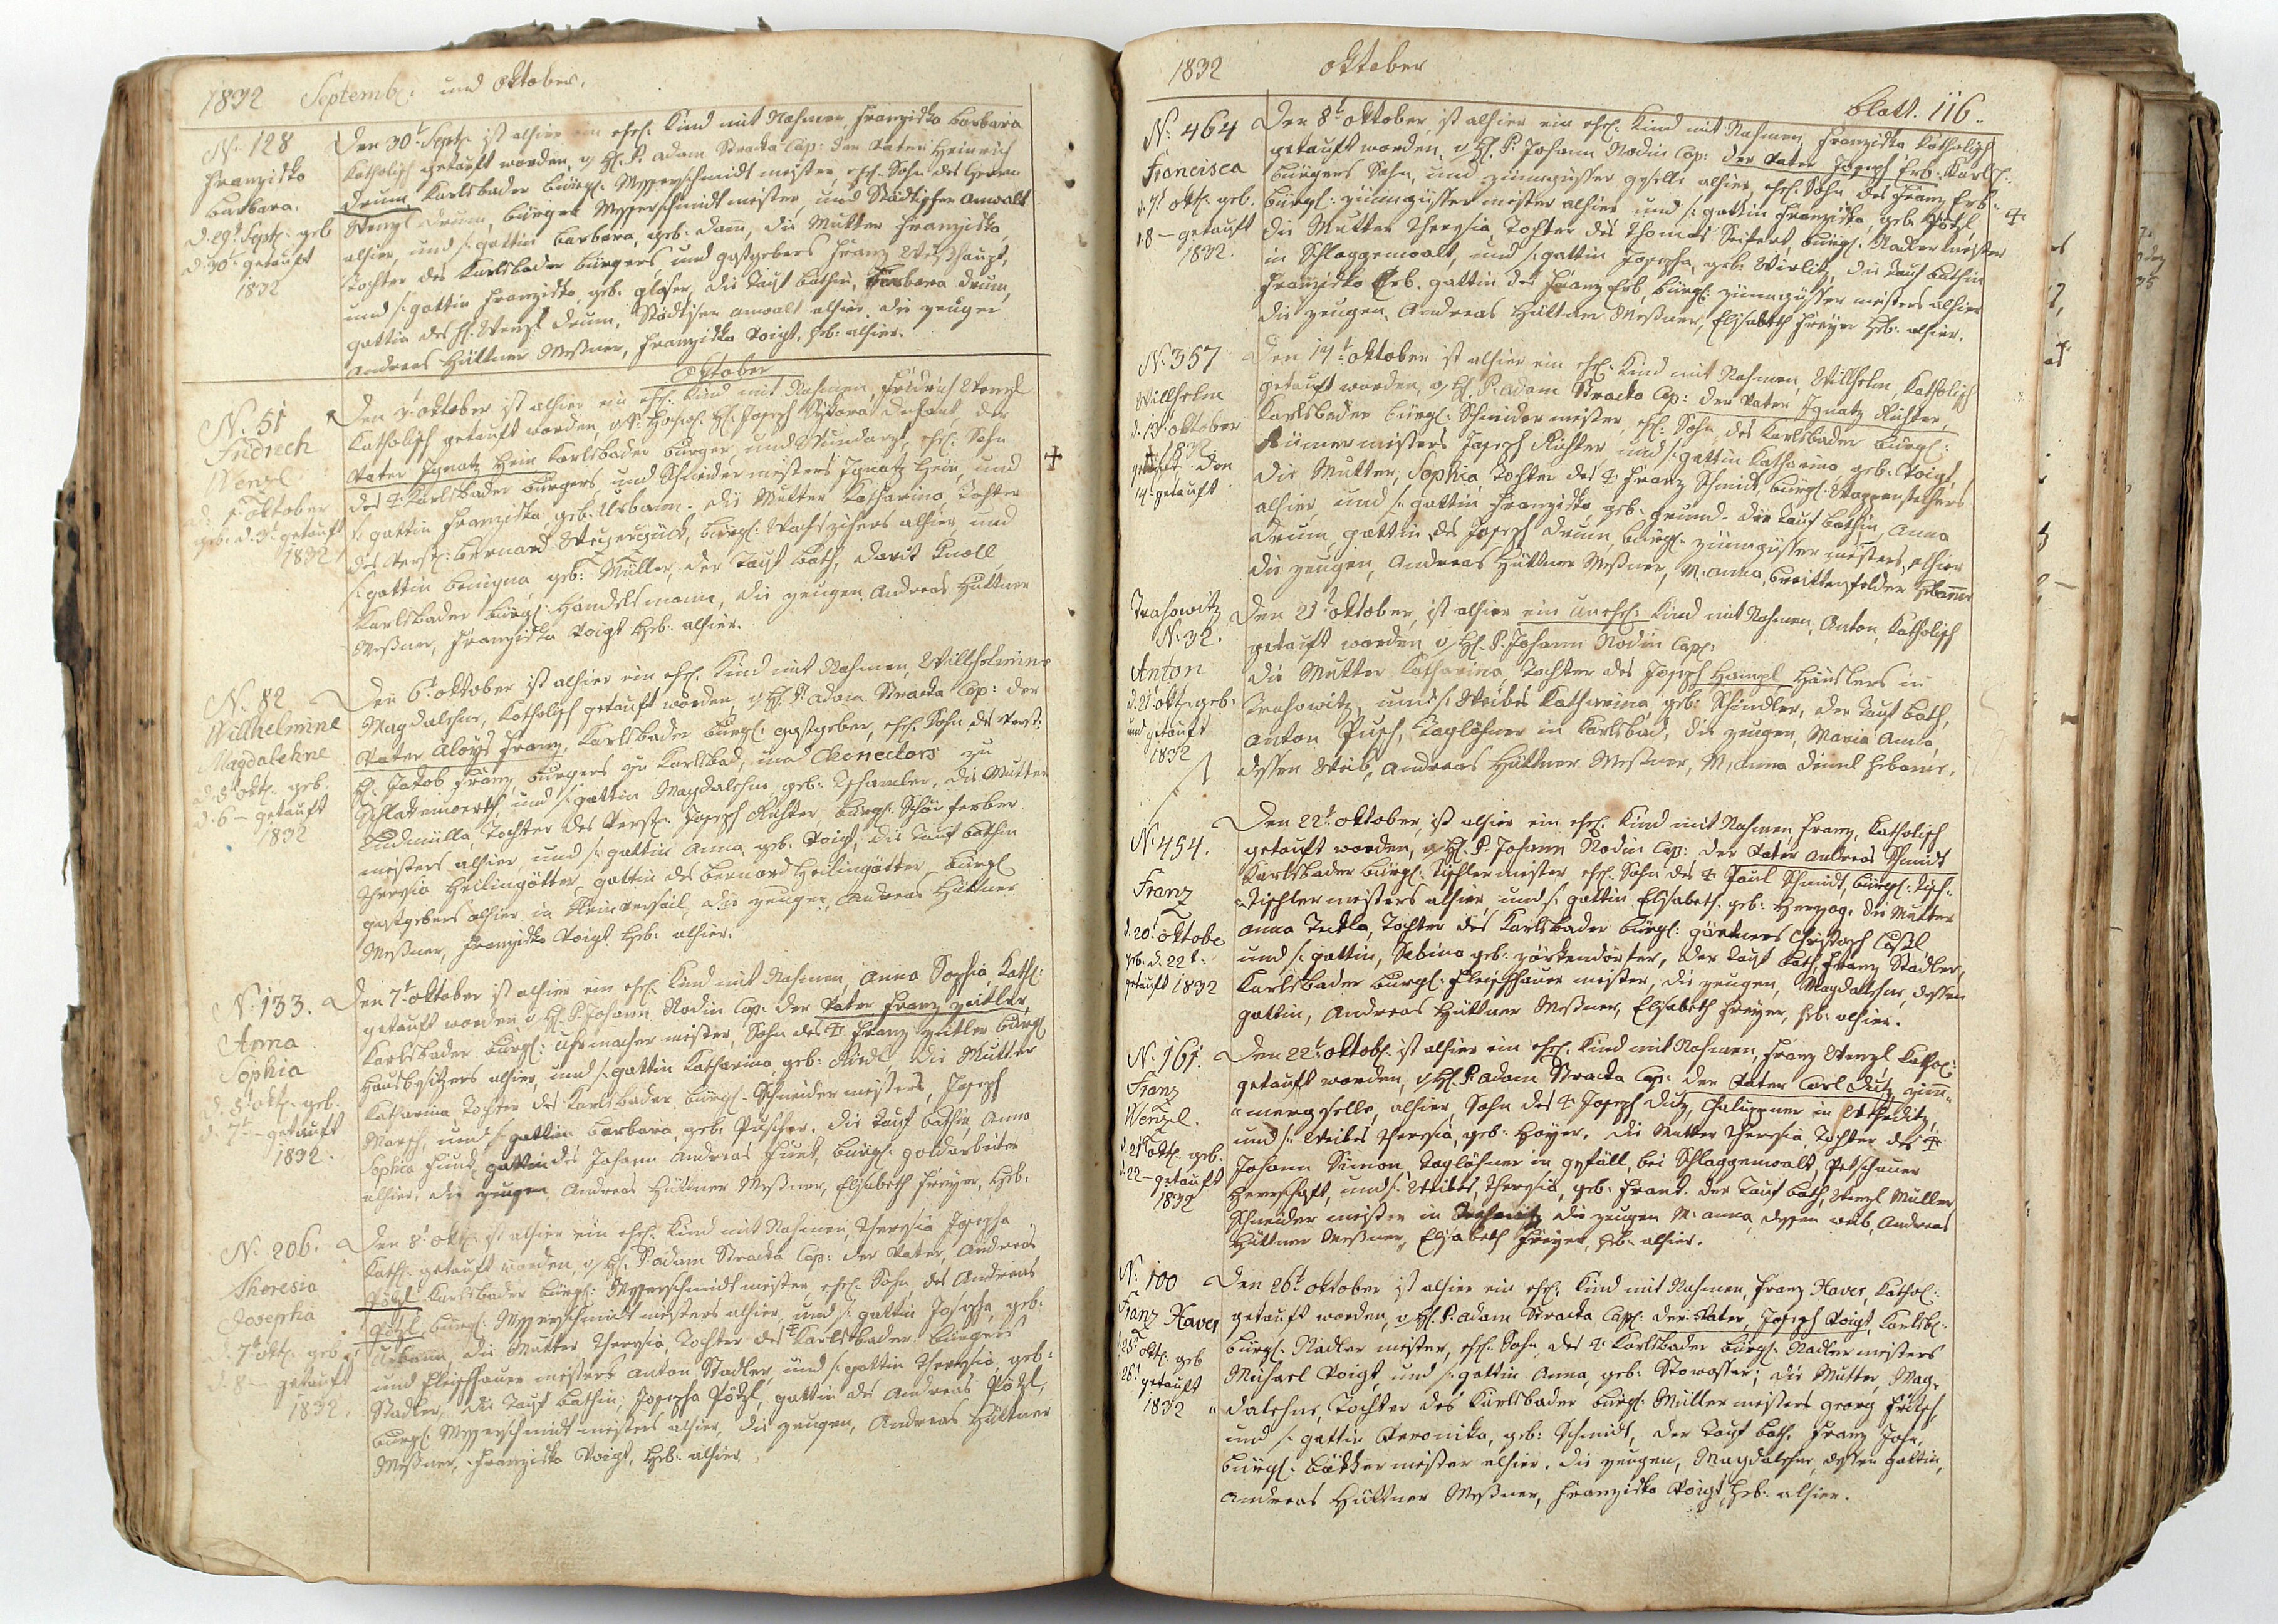 1832 Septemb: und Oktober.
N. 128
Franziska
Barbara.
d. 29t Sept: geb
d. 30t getauft
1832
Den 30t Sept: ist alhier ein ehel: Kind mit Nahmen, Franziska Barbara
Katholisch getauft worden, v H. P. Adam Stracka Cap: der Vater Heinrich
Drum, Karlsbader bürgl: Messerschmidt meister, ehel. Sohn des Herrn
Wenzl Drum, bürger Messerschmidt meister, und Städtischer Anwalt
alhier, und s: gattin Barbara, geb: Damm, die Mutter Franziska,
Tochter des Karlsbader bürgers und gastgebers Franz Weishaupt,
und s: gattin Franziska, geb. glaser, die Tauf bathin, Barbara Drum,
gattin des H. Wenzl Drum, Städtischen anwalt alhier. die zeugen
Andreas Hüttner Meßner, Franziska Voigt, Heb: alhier.
Oktober
N. 51
Fridrich
Wenzl
d. Oktober
geb: d. 3t getauft
1832
Den 3t Oktober ist alhier ein ehel: Kind mit Nahmen, Fridrich Wenzl
Katholisch getauft worden, v Sr: Hochw: H. Joseph Sykora Dechant, der
Vater Ignatz Hein Karlsbader bürger, und Wundarzt, ehel: Sohn
des + Karlsbader bürgers, und Schneidermeisters Ignatz Hein, und
s: gattin Franziska geb. Urbann. die Mutter Katharina, Tochter
des Verst: Bernard bürgl: Wachsziehers alhier, und
s: gattin Benigna, geb: Müller, der Tauf bath, David Knoll
Karlsbader bürgl: Handelsmann, die zeugen Andreas Hüttner
Meßner, Franziska Voigt Heb: alhier.
N. 82
Willhelmine
Magdalehne
d. 5t okt: geb.
d. 6 – getauft
1832
Den 6t Oktober ist alhier ein ehel: Kind mit Nahmen, Willhelmine
Magdalehne, Katholisch getauft worden, v H. P. Adam Stracka Cap: der
Vater Aloys Franz, Karlsbader bürgl: gastgeber, ehel: Sohn des Verst:
H. Jakob Franz, bürgers zu Karlsbad, und Chorrectors zu
Schlackenwerth, und s: gattin Magdalehne, geb: Tschamler, die Mutter
Ludmilla, Tochter des Verst: Joseph Richter, bürgl: Schönferber
meisters alhier, und s: gattin Anna, geb: Voigt, die Tauf bathin
Theresia Heilingötter, gattin des Bernard Heilingötter, bürgl
gastgebers alhier in die zeugen, Andreas Hüttner
Meßner, Franziska Voigt Heb: alhier.
N. 133.
Anna
Sophia
d. 5t okt: geb.
d. 7t – getauft
1832.
Den 7t Oktober ist alhier ein ehel: Kind mit Nahmen, Anna Sophia, Kathl:
getauft worden v H. P. Johann Nodin Cap: der Vater Franz Zeitler,
Karlsbader bürgl: Uhrmacher meister, Sohn des + Franz Zeitler bürgl
Hausbesitzers alhier, und s: gattin Katharina, geb: Riedl, die Mutter
Katharina Tochter des Karlsbader bürgl: Schneider meisters, Joseph
Marsch, und s: gattin Barbara, geb: Püscher. die Tauf bathin, Anna
Sophia Funk, gattin des Johann Andreas Funk, bürgl: goldarbeiter
alhier, die zeugen Andreas Hüttner Meßner, Elisabeth Freyer, Heb:
N. 206.
Theresia
Josepha
d. 7t okt: geb
d. 8 – getauft
1832.
Den 8t okt: ist alhier ein ehel: Kind mit Nahmen, Theresia Josepha
Kathl: getauft worden, v H. P. Adam Stracka Cap: der Vater, Andreas
Pötzl Karlsbader bürgl: Messerschmidt meister, ehel: Sohn des Andreas
Pötzl, bürgl: Messerschmidt meisters alhier, und s: gattin Josepha, geb:
Urbann, die Mutter Theresia, Tochter des + Karlsbader bürgers
und Fleischhauer meisters Anton Stadler, und s: gattin Theresia, geb:
Stadler, die Tauf bathin, Josepha Pötzl, gattin des Andreas Pötzl,
bürgl: Messerschmidt meisters alhier, die zeugen, Andreas Hüttner
Meßner, Franziska Voigt, Heb: alhier
1832 Oktober
blatt. 116.
N: 464
Francisca
d. 7t okt: geb.
d. 8 – getauft
1832.
Den 8t Oktober ist alhier ein ehel: Kind mit Nahmen, Franziska Katholisch
getauft worden, v H. P. Johann Nodin Cap: der Vater Joseph Erb, Karlsb:
bürgers Sohn, und zinngüsser geselle alhier, ehel: Sohn des Franz Erb
bürgl: zinngüsser meister alhier, und s: gattin Franziska, geb. Pötzl, +
die Mutter Theresia, Tochter des Thomas Seifert, bürgl: Nadler meister
in Schlaggenwalt, und s: gattin Josepha, geb: Wirlitz, die Tauf bathin
Franziska Erb, gattin des Franz Erb, bürgl: zinngüsser meisters alhier
die zeugen, Andreas Hüttner Meßner, Elisabeth Freyer Heb: alhier.
N. 357
Willhelm
d. 13t Oktober
1832
geb: den
14t getauft
Den 14t Oktober ist alhier ein ehel: Kind mit Nahmen, Willhelm, Katholisch
getauft worden, v H. P. Adam Stracka Cap: der Vater Ignatz Richter,
Karlsbader bürgl: Schneider meister, ehel: Sohn des Karlsbader bürgl:
Riemer meisters Joseph Richter und s: gattin Katharina, geb: Voigt,
die Mutter, Sophia, Tochter des + Franz Schmidt, bürgl: Wappenstechers
alhier, und s: gattin Franziska geb: Grund. die Tauf bathin, Anna
Drum, gattin des Joseph Drum bürgl: zinngüsser meisters, alhier
die zeugen, Andreas Hüttner Meßner, M: Anna, Breittenfelder Hebamme
Drahowitz
N. 32.
Anton
d. 21t okt: geb.
und getauft
1832
Den 21t Oktober, ist alhier ein unehel: Kind mit Nahmen, Anton, Katholisch
getauft worden, v H. P. Johann Nodin Cap:
die Mutter Katharina, Tochter des Joseph Hampl, Häuslers in
Drahowitz, und s: Weibes Katharina, geb: Schindler, der Tauf bath,
Anton Pusch, Taglöhner in Karlsbad, die zeugen, Maria Anna,
dessen Weib, Andreas Hüttner Meßner, M: Anna Dinnl Hebame.
N. 454.
Franz
d. 20t Oktobe
geb. d. 22t:
getauft 1832
Den 22t Oktober, ist alhier ein ehel: Kind mit Nahmen, Franz, Katholisch
getauft worden, v H. P. Johann Nodin Cap: der Vater Andreas Schmidt
Karlsbader bürgl: Tischler meister, ehel: Sohn des + Paul Schmidt, bürgl: Tisch-
Tischler meisters alhier, und s: gattin Elisabeth, geb: Herzog, die Mutter
Anna Tekla, Tochter des Karlsbader bürgl: gärtners Christoph Cößl
und s: gattin, Sabina geb: Zörkendörfer, der Tauf bath, Franz Stadler,
Karlsbader bürgl: Fleischhauer meister, die zeugen, Magdalehne dessen
gattin, Andreas Hüttner Meßner, Elisabeth Freyer, Heb: alhier.
N. 161.
Franz
Wenzl.
d. 21t okt: geb.
d. 22 – getauft
1832
Den 22t Oktob: ist alhier ein ehel: Kind mit Nahmen, Franz Wenzl Kathol:
getauft worden, v H. P. Adam Stracka Cap: der Vater Carl Dutz, zim-
mergeselle, alhier, Sohn des + Joseph Dutz, Chaluppner in
und s: Weibes Theresia, geb: Hoyer, die Mutter Theresia, Tochter des +
Johann Simon, Taglöhner in gefäll, bei Schlaggenwalt, Petschauer
Herrschaft, und s: Weibes, Theresia, geb: Frank. der Tauf bath, Wenzl Müller
Schneider meister in die zeugen M: Anna, dessen weib, Andreas
Hüttner Meßner, Elisabeth Freyer, Heb: alhier.
N: 100
Franz Xaver
d. 25t okt: geb
d. 26t getauft
1832
Den 26t Oktober ist alhier ein ehel: Kind mit Nahmen, Franz Xaver, Kathol:
getauft worden, v H. P. Adam Stracka Cap: der Vater, Joseph Voigt, Karlsb:
bürgl: Nadler meister, ehel: Sohn des + Karlsbader bürgl: Nadler meisters
Michael Voigt, und s: gattin Anna, geb: Stowasser; die Mutter, Mag-
dalehne, Tochter des Karlsbader bürgl: Müller meisters Georg Fritsch,
und s: gattin Veronika, geb: Schmidt, der Tauf bath, Franz John,
bürgl: Bäcker meister alhier. die zeugen, Magdalehne, dessen gattin,
Andreas Hüttner Meßner, Franziska Voigt, Heb: alhier.